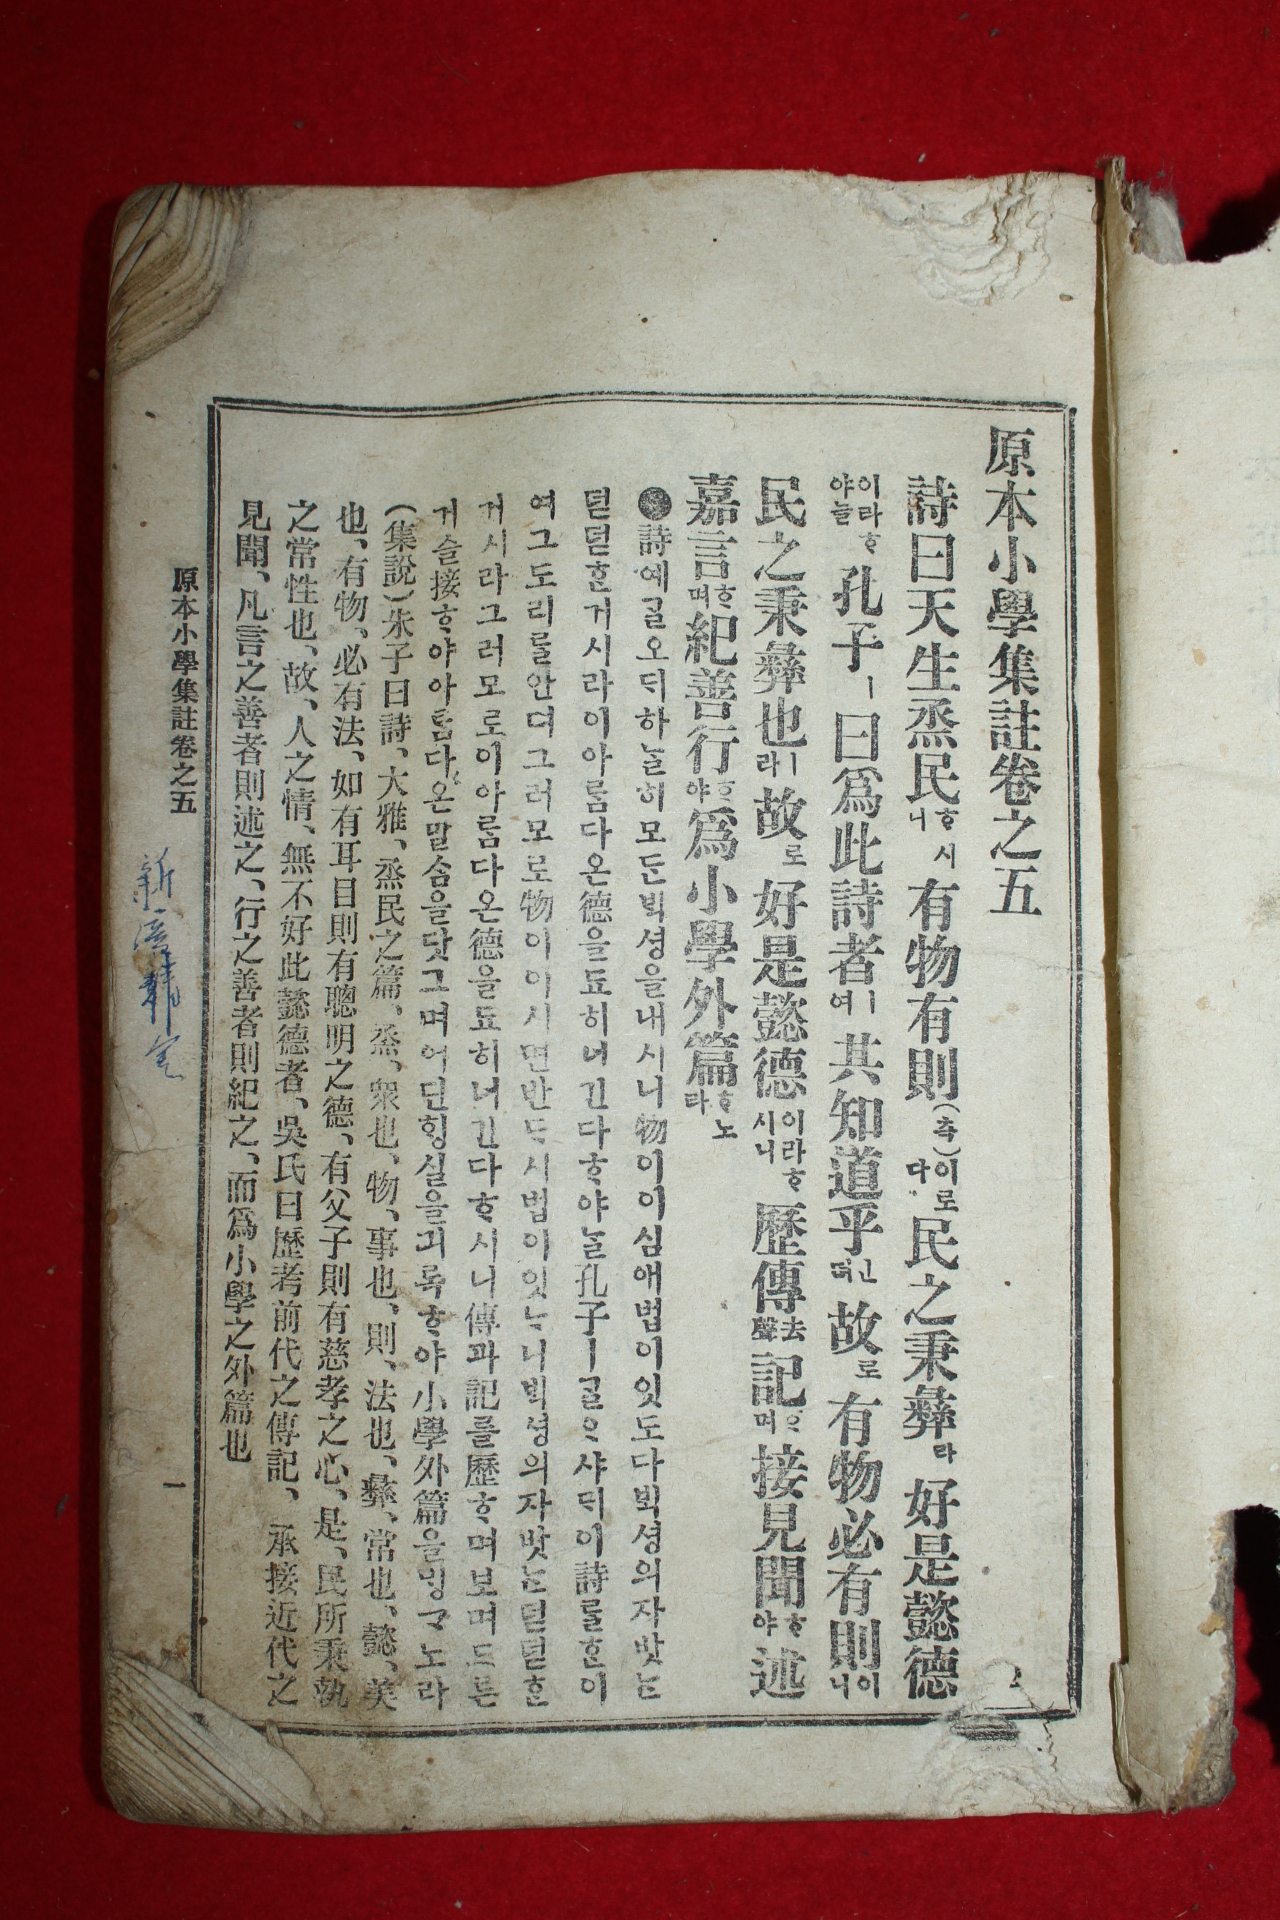 原本小學集註卷之五
詩曰天生烝民ᄒᆞ시니有物有則(측)이로다民之秉彝라好是懿德
이라ᄒᆞ야늘孔子ㅣ曰爲此詩者ㅣ여共知道乎ㄴ뎌故로有物必有則이니
民之秉彝也ㅣ라故로好是懿德이라ᄒᆞ시니歷傳去聲記ᄒᆞ며接見聞ᄒᆞ야述
嘉言ᄒᆞ며紀善行ᄒᆞ야爲小學外篇ᄒᆞ노라
詩예ᄀᆞᆯ오ᄃᆡ하ᄂᆞᆯ히모ᄃᆞᆫᄇᆡᆨ셩을내시니物이이심애법이잇도다ᄇᆡᆨ셩의자밧ᄂᆞᆫ
덛덛ᄒᆞᆫ거시라이아ᄅᆞᆷ다온德을됴히너긴다ᄒᆞ야ᄂᆞᆯ孔子ㅣᄀᆞᆯᄋᆞ샤ᄃᆡ이詩ᄅᆞᆯᄒᆞᆫ이
여그도리ᄅᆞᆯ안뎌그러모로物이이시면반ᄃᆞ시법이잇ᄂᆞ니ᄇᆡᆨ셩의자밧ᄂᆞᆫ덛덛ᄒᆞᆫ
거시라그러모로이아ᄅᆞᆷ다온德을됴히너긴다ᄒᆞ시니傳과記ᄅᆞᆯ歷ᄒᆞ며보며드른
거슬接ᄒᆞ야아ᄅᆞᆷ다온말ᄉᆞᆷ을닷그며어딘ᄒᆡᆼ실을긔록ᄒᆞ야小學外篇을ᄆᆡᆼᄀᆞ노라
(集說)朱子曰詩、大雅、烝民之篇、烝、衆也、物、事也、則、法也、彝、常也、懿、美
也、有物、必有法、如有耳目則有聰明之德、有父子則有慈孝之心、是、民所秉執
之常性也、故、人之情、無不好此懿德者、吳氏曰歷考前代之傳記、承接近代之
見聞、凡言之善者則述之、行之善者則紀之、而爲小學之外篇也
原本小學集註卷之五 一